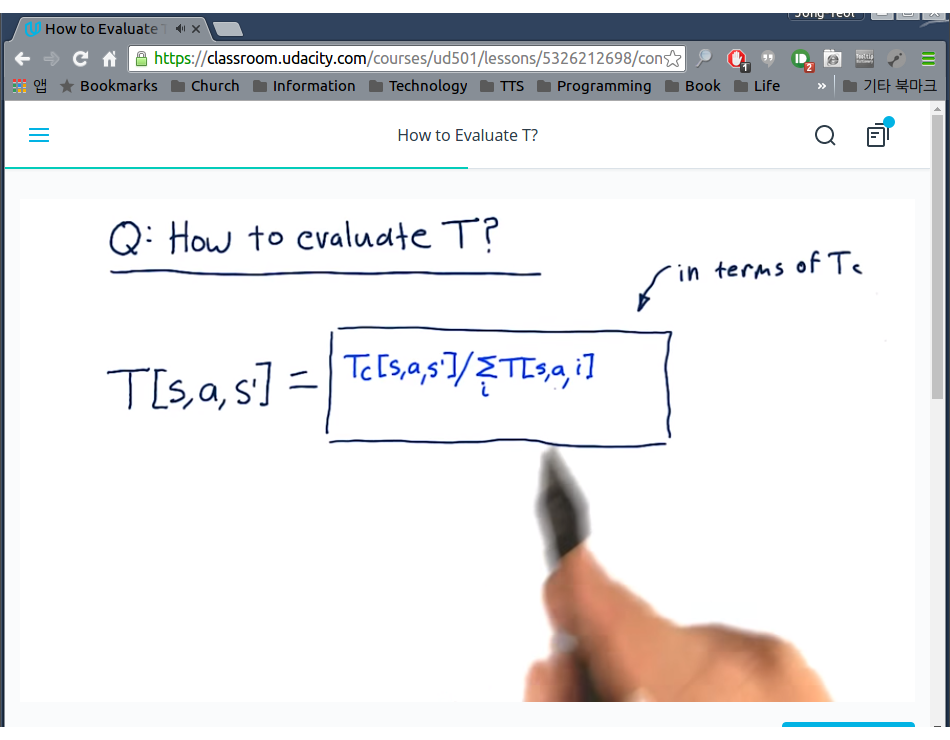 Jong Yeol
How to Evaluate T
https://classroom.udacity.com/courses/ud501/lessons/5326212698/con
1
2
앱 Bookmarks Church Information Technology TTS Programming Book Life » 기타 북마크
How to Evaluate T?
Q: How to evaluate T?
in terms of Tc
T[s,a,s'] = Tc[s,a,s']/∑T[s,a,i]
i